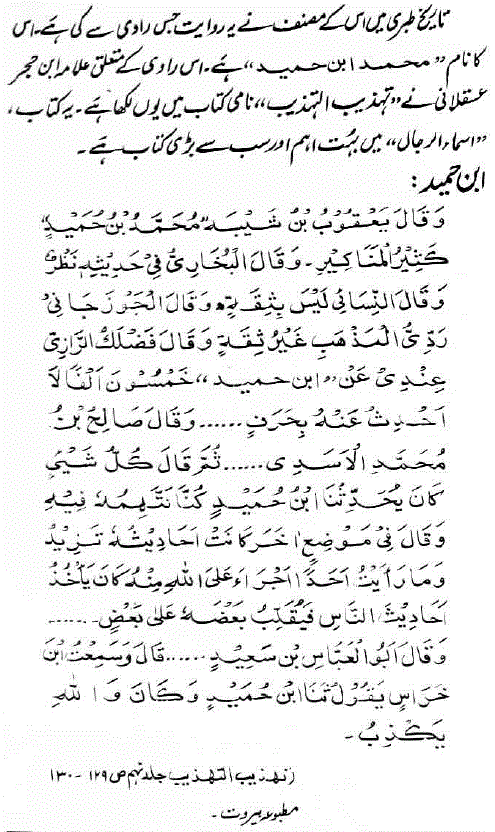 تاریخ طبری میں اس کے مصنف نے یہ روایت جس راوی سے کی ہے۔ اس
کا نام ”محمد ابن حمید“ ہے۔ اس راوی کے متعلق علامہ ابن حجر
عسقلانی نے ”تہذیب التہذیب“ نامی کتاب میں یوں لکھا ہے۔ یہ کتاب،
”اسماء الرجال“ میں بہت اہم اور سب سے بڑی کتاب ہے۔
ابن حمید:
وَقَالَ يَعْقُوْبُ بْنُ شَيْبَه ”مُحَمَّدُ بْنُ حُمَيْدٍ“
كَثِيْرُ الْمَنَاكِيْرِ۔ وَقَالَ الْبُخَارِیُّ فِیْ حَدِيْثِهٖ نَظْرٌ
وَقَالَ النِّسَائِی لَيْسَ بِثِقَةٍ وَقَالَ الْجُوْزَجَانِیْ
رَدِّیُّ الْمَذْهَبِ غَيْرُ ثِقَةٍ وَقَالَ فَضْلَكُ الرَّازِیُّ
عِنْدِیْ عَنْ ”ابن حمید“ خَمْسُوْنَ اَلْفًا لَا
اُحَدِّثُ عَنْهُ بِحَرْفٍ ...... وَقَالَ صَالِحُ بْنُ
مُحَمَّدِ الْاَسَدِی ...... ثُمَّ قَالَ كُلُّ شَیْءٍ
كَانَ يُحَدِّثُنَا ابْنُ حُمَيْدٍ كُنَّا نَتَّهِمُهٗ فِيْهِ
وَقَالَ فِیْ مَوْضِعٍ اٰخَرَ كَانَتْ اَحَادِيْثُهٗ تَزِيْدُ
وَمَا رَأَيْتُ اَحَدًا اَجْرَاءَ عَلَی اللهِ مِنْهُ كَانَ يَأْخُذُ
اَحَادِيْثَ النَّاسِ فَيُقَلِّبُ بَعْضَهٗ عَلٰی بَعْضٍ ......
وَقَالَ اَبُو الْعَبَّاسِ بْنِ سَعِيْدٍ ...... قَالَ وَسَمِعْتُ ابْنَ
خَرَاسٍ يَقُوْلُ ثَنَا ابْنُ حُمَيْدٍ وَكَانَ وَاللهِ
يَكْذِبُ۔
(تہذیب التہذیب جلد نہم ص ۱۲۹ - ۱۳۰
مطبوعہ بیروت۔